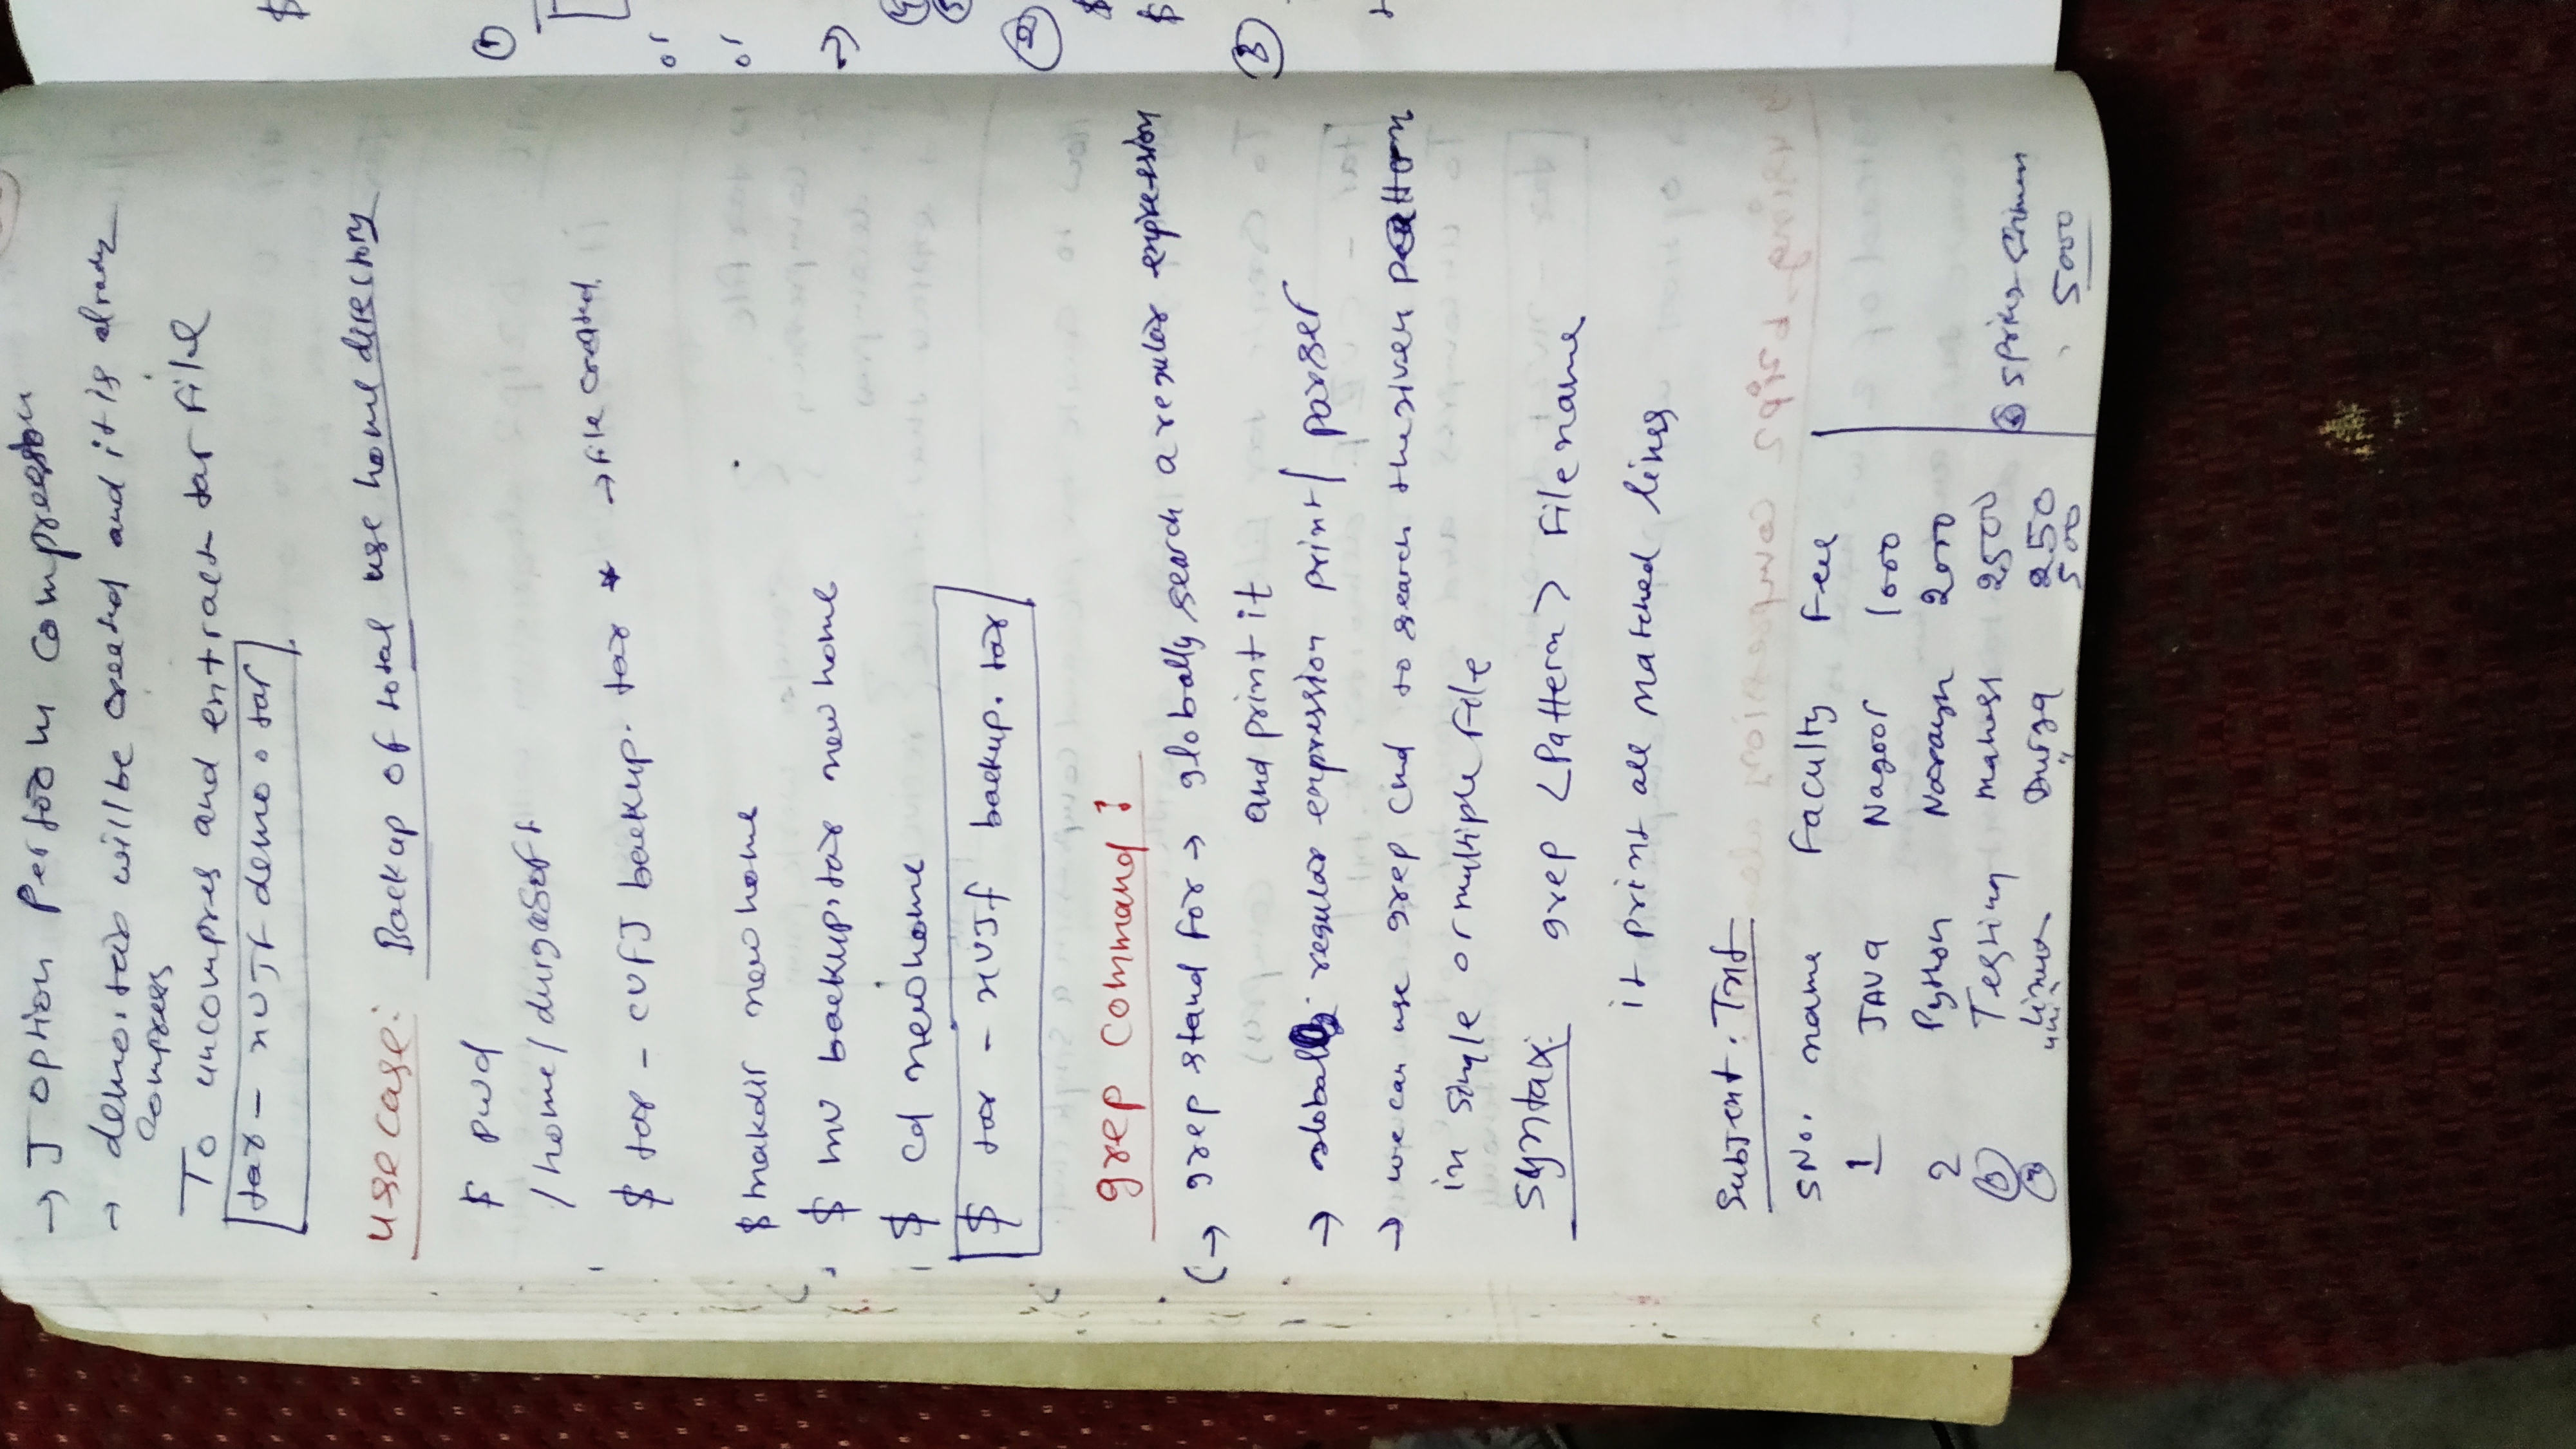 → J option Perform compression
→ demo.tar will be created and it is already
compress
To uncompres and extract tar file
tar - xvJf demo.tar
use case: Backup of total use home directory
$ pwd
/home/durgasoft
$ tar - cvfJ backup.tar * → file created.
$ makdir newhome
$ mv backup.tar newhome
$ cd newhome
$ tar - xvJf backup.tar
grep command:
(→ grep stand for → globally search a regular expression
and print it
→ globally regular expression print/ parser
→ we can use grep cmd to search the given pattern
in single or multiple file
syntax: grep <Pattern> Filename
it print all matched lines
Subject.Txt
SNo. name Faculty Fee
1 JAVA Nagoor 1000
2 Python Narayan 2000
Testing Mahesh 2500
Linux Durga 250
unix " 500
5000
$
①
or
or
→
④
⑤
②
$
$
③